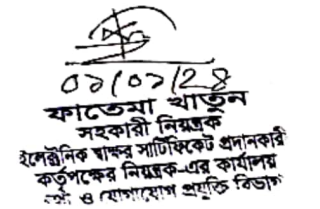 ০১/০১/২৪
ফাতেমা খাতুন
সহকারী নিয়ন্ত্রক
ইলেক্ট্রনিক স্বাক্ষর সার্টিফিকেট প্রদানকারী
কর্তৃপক্ষের নিয়ন্ত্রক-এর কার্যালয়
ও যোগাযোগ প্রযুক্তি বিভাগ